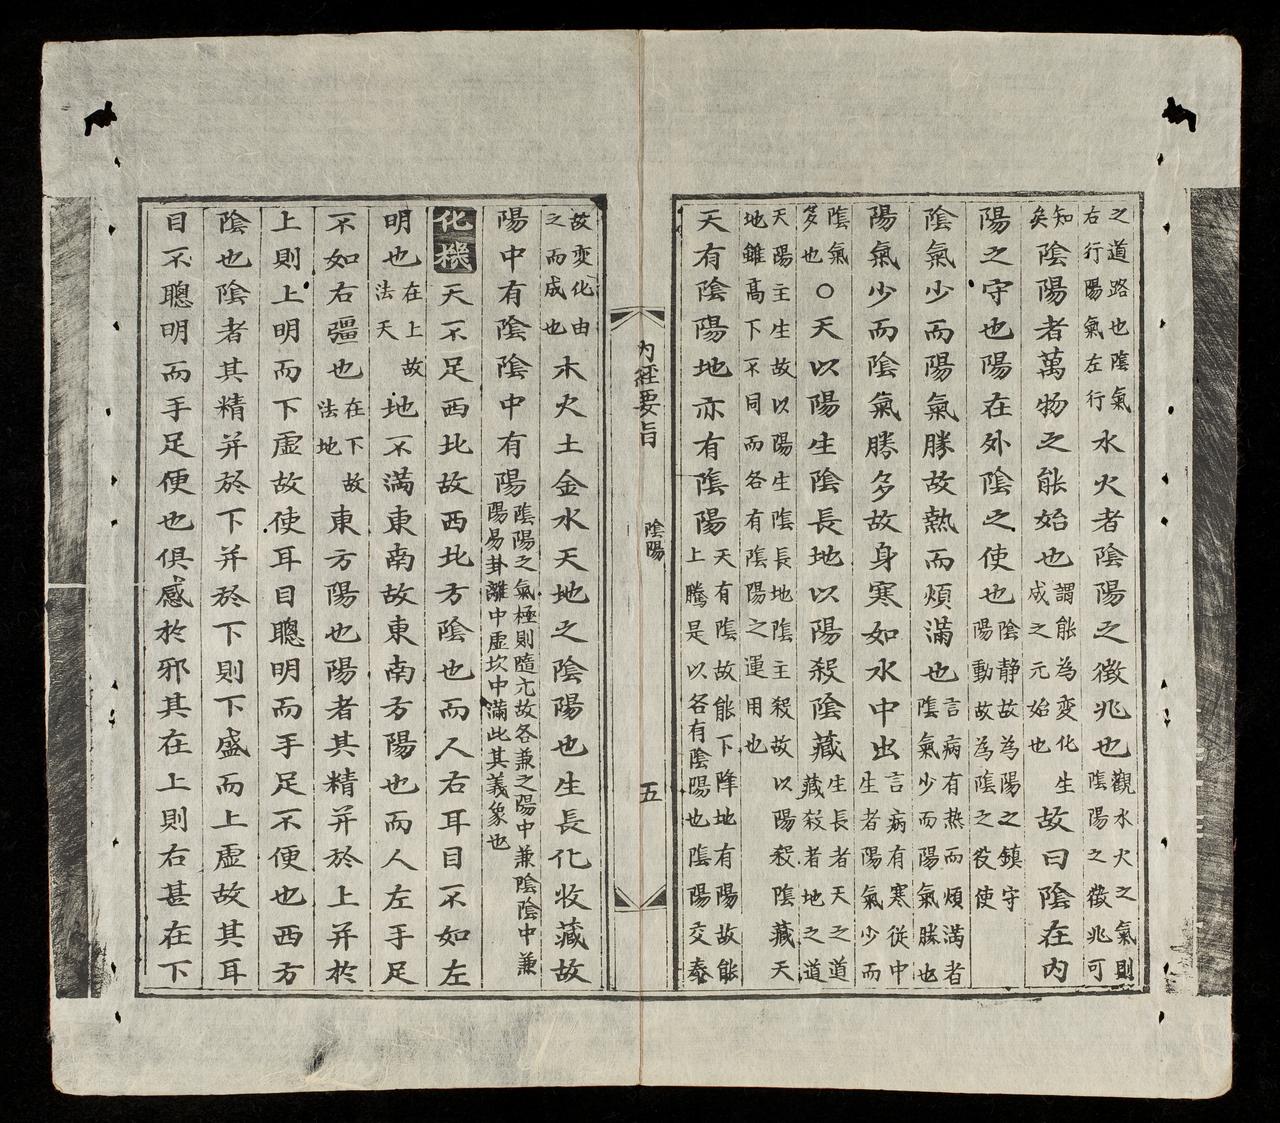 之道路也陰氣右行陽氣左行水火者陰陽之徵兆也觀水火之氣則陰陽之徵兆可
知矣陰陽者萬物之能始也謂能為变化生成之元始也故曰陰在內
陽之守也陽在外陰之使也陰静故為陽之鎮守陽動故為陰之役使
陰氣少而陽氣勝故熱而煩滿也言病有热而煩滿者陰氣少而陽氣勝也
陽氣少而陰氣勝多故身寒如水中出言病有寒從中生者陽氣少而
陰氣多也○天以陽生陰長地以陽殺陰藏生長者天之道藏殺者地之道
天陽主生故以陽生陰長地陰主殺故以陽殺陰藏天地雖高下不同而各有陰陽之運用也
天有陰陽地亦有陰陽天有陰故能下降地有陽故能上騰是以各有陰陽也陰陽交泰
內經要旨 陰陽 五
故变化由之而成也木火土金水天地之陰陽也生長化收藏故
陽中有陰陰中有陽陰陽之氣極則隨亢故各兼之陽中兼陰陰中兼陽易卦離中虛坎中滿此其義象也
化機天不足西北故西北方陰也而人右耳目不如左
明也在上故法天地不滿東南故東南方陽也而人左手足
不如右彊也在下故法地東方陽也陽者其精并於上并於
上則上明而下虛故使耳目聰明而手足不便也西方
陰也陰者其精并於下并於下則下盛而上虛故其耳
目不聰明而手足便也俱感於邪其在上則右甚在下